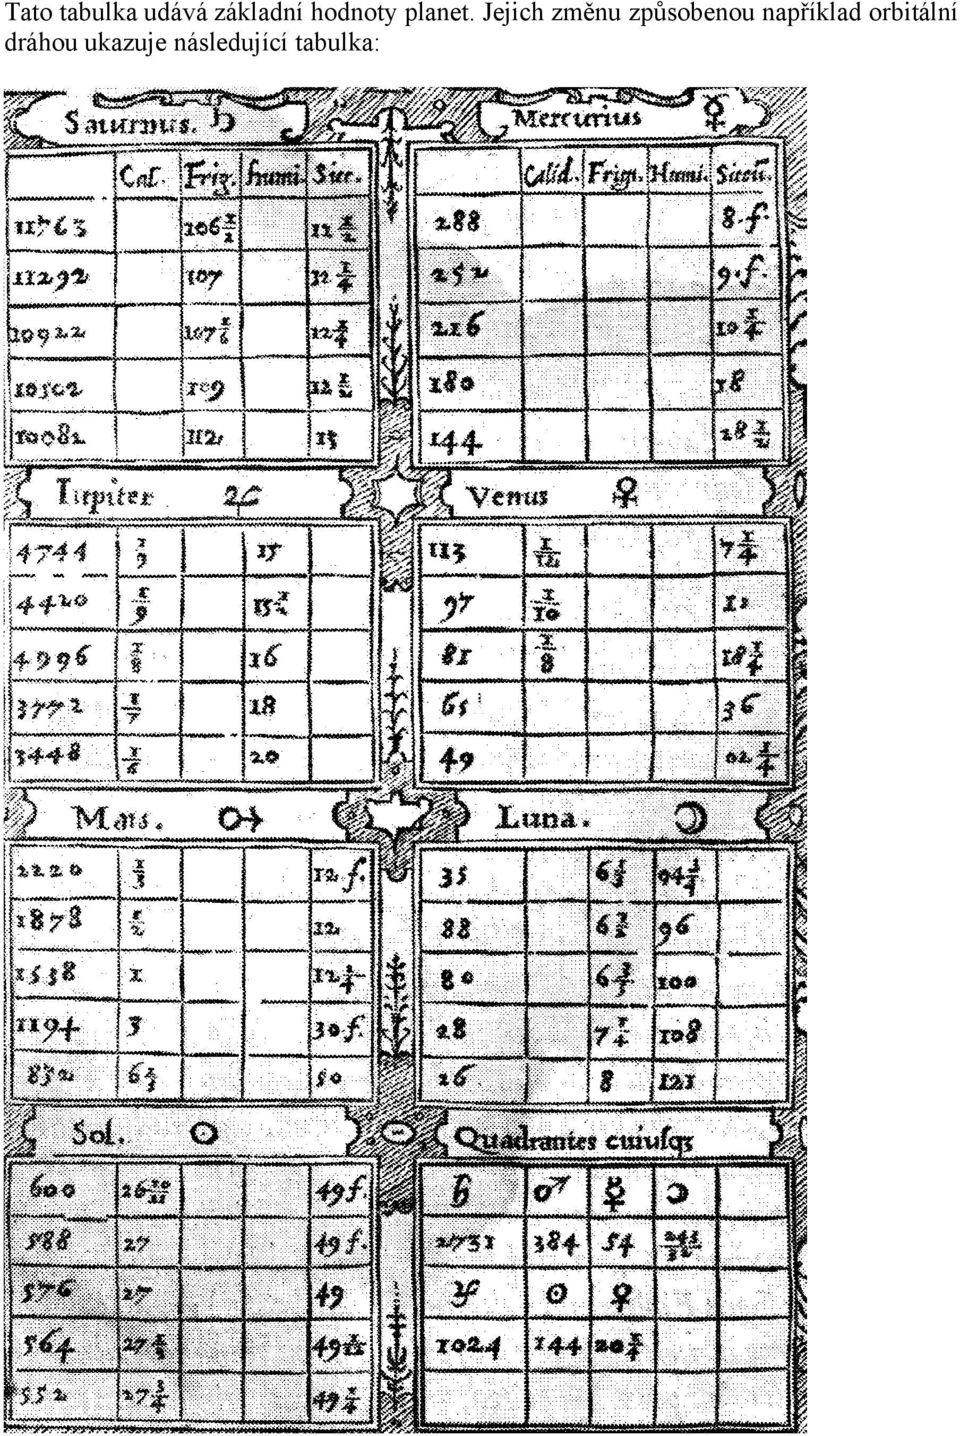 Tato tabulka udává základní hodnoty planet. Jejich změnu způsobenou například orbitální
dráhou ukazuje následující tabulka:
Saturnus. ♄
Cal. Frig. humi. Sicc.
11763 106 1/2 12 1/2
11292 107 12 1/4
10922 107 1/6 12 1/4
10502 109 12 1/2
10082 112 13
Mercurius ☿
Calid. Frigi. Humi. Siccū.
288 8.f.
252 9.f.
216 10 1/4
180 18
144 28 1/2
Iupiter ♃
4744 1/9 15
4420 1/9 15 1/2
4996 1/8 16
3772 1/7 18
3448 1/6 20
Venus ♀
113 1/12 7 1/4
97 1/10
81 1/8 18 1/4
65 36
49 1/4
Mars. ♂
2220 1/3 12.f.
1878 1/2 12
1538 1 12 1/4
1194 3 30f.
832 6 50
Luna. ☽
35 6 94
88 6 1/2 96
80 6 100
28 7 1/4 108
26 8 121
Sol. ☉
600 26 10/11 49f.
588 27 49f.
576 27 49
564 27 49
552 27 3/4 49 1/4
Quadrantes cuiusq;
♄ ♂ ☿ ☽
2731 384 54
♃ ☉ ♀
1024 144 20 1/4